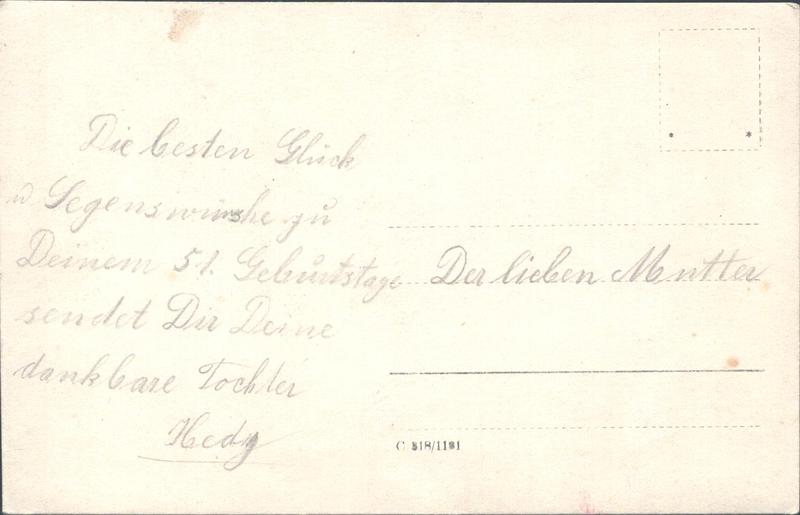 Die besten Glück
u Segenswünshe zu
Deinem 51. Geburtstage
sendet Dir Deine
dankbare Tochter
Hedy
Der lieben Mutter